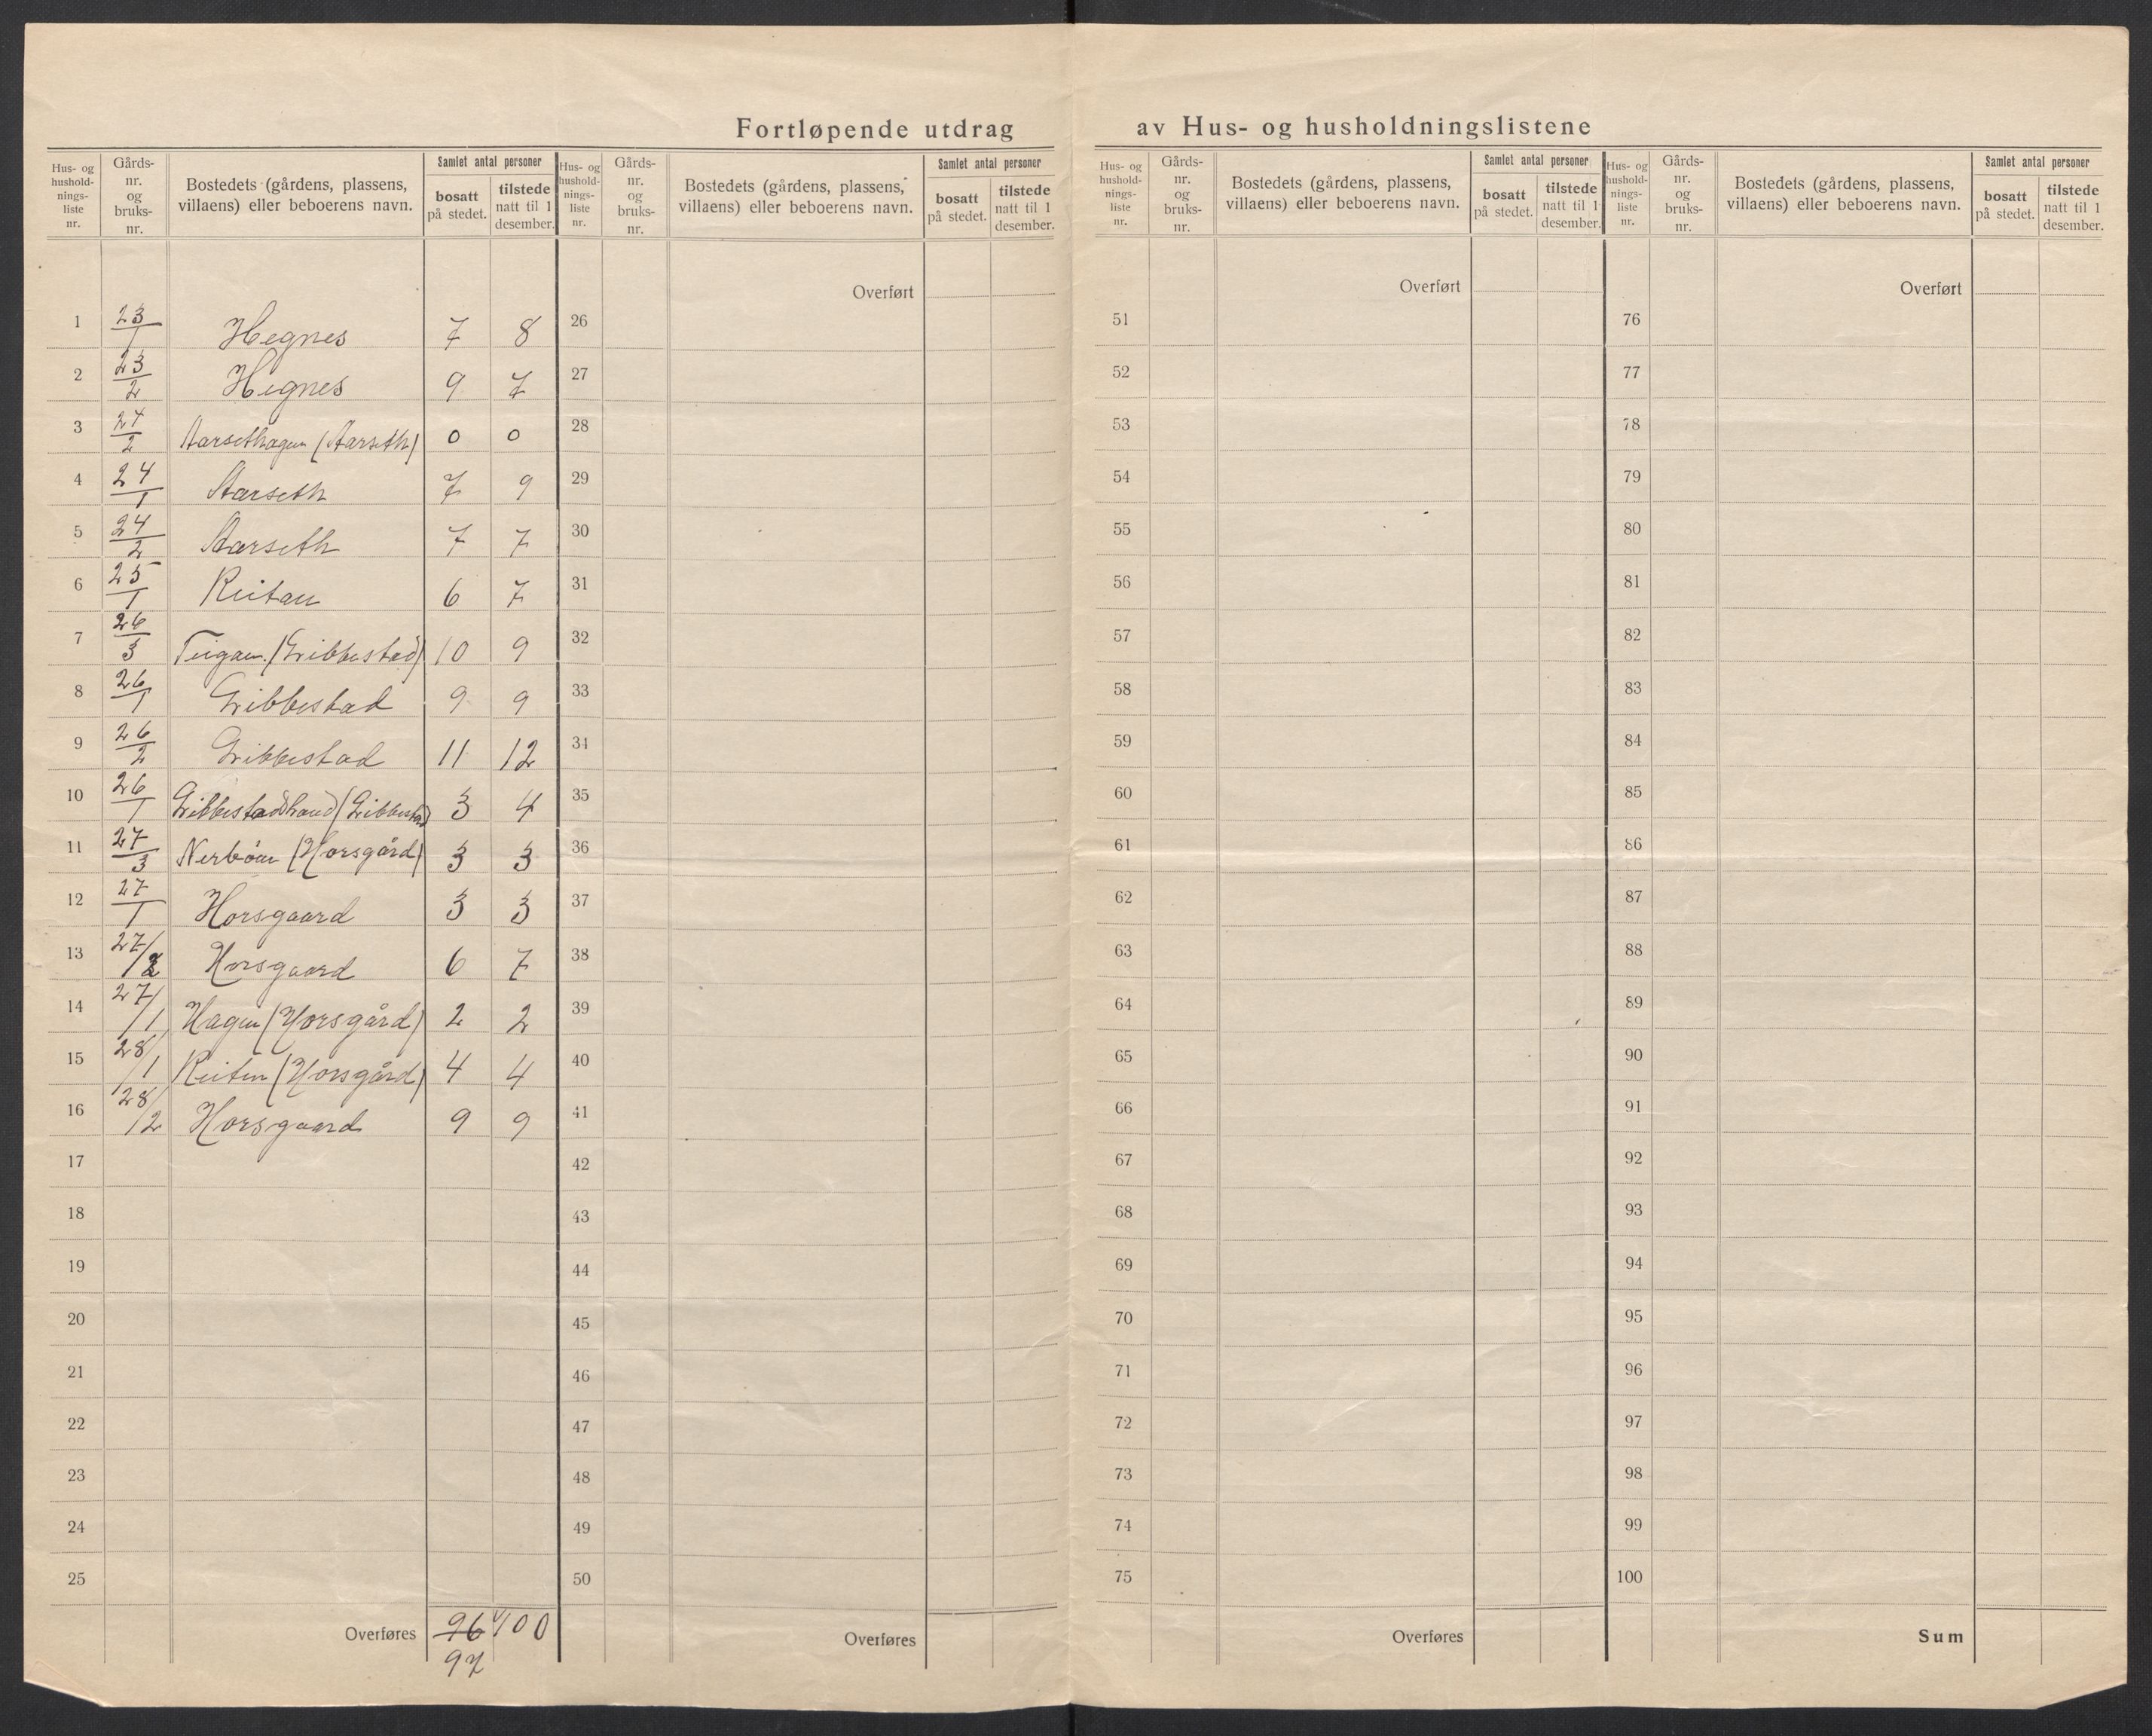 Fortløpende utdrag av Hus- og husholdningslistene
Hus- og hushold-nings-liste nr. | Gårds-nr. og bruks-nr. | Bostedets (gårdens, plassens, villaens) eller beboerens navn. | Samlet antal personer | bosatt på stedet. | tilstede natt til 1 desember.
1 23/1 Hegnes 7 8
2 23/2 Hegnes 9 7
3 24/2 Aarsethagen (Aarseth) 0 0
4 24/1 Aarseth 7 9
5 24/2 Aarseth 7 7
6 25/1 Reitan 6 7
7 26/3 Teigan (Gribbestad) 10 9
8 26/1 Gribbestad 9 9
9 26/2 Gribbestad 11 12
10 26/1 Gribbestadstrand (Gribbestad) 3 4
11 27/3 Nerbøen (Horsgård) 3 3
12 27/1 Horsgaard 3 3
13 27/2 Horsgaard 6 7
14 27/1 Hagen (Horsgård) 2 2
15 28/1 Reiten (Horsgård) 4 4
16 28/2 Horsgaard 9 9
17
18
19
20
21
22
23
24
25
Overføres 96 100
97
Hus- og hushold-nings-liste nr. | Gårds-nr. og bruks-nr. | Bostedets (gårdens, plassens, villaens) eller beboerens navn. | Samlet antal personer | bosatt på stedet. | tilstede natt til 1 desember.
Overført
26
27
28
29
30
31
32
33
34
35
36
37
38
39
40
41
42
43
44
45
46
47
48
49
50
Overføres
Hus- og hushold-nings-liste nr. | Gårds-nr. og bruks-nr. | Bostedets (gårdens, plassens, villaens) eller beboerens navn. | Samlet antal personer | bosatt på stedet. | tilstede natt til 1 desember.
Overført
51
52
53
54
55
56
57
58
59
60
61
62
63
64
65
66
67
68
69
70
71
72
73
74
75
Overføres
Hus- og hushold-nings-liste nr. | Gårds-nr. og bruks-nr. | Bostedets (gårdens, plassens, villaens) eller beboerens navn. | Samlet antal personer | bosatt på stedet. | tilstede natt til 1 desember.
Overført
76
77
78
79
80
81
82
83
84
85
86
87
88
89
90
91
92
93
94
95
96
97
98
99
100
Sum